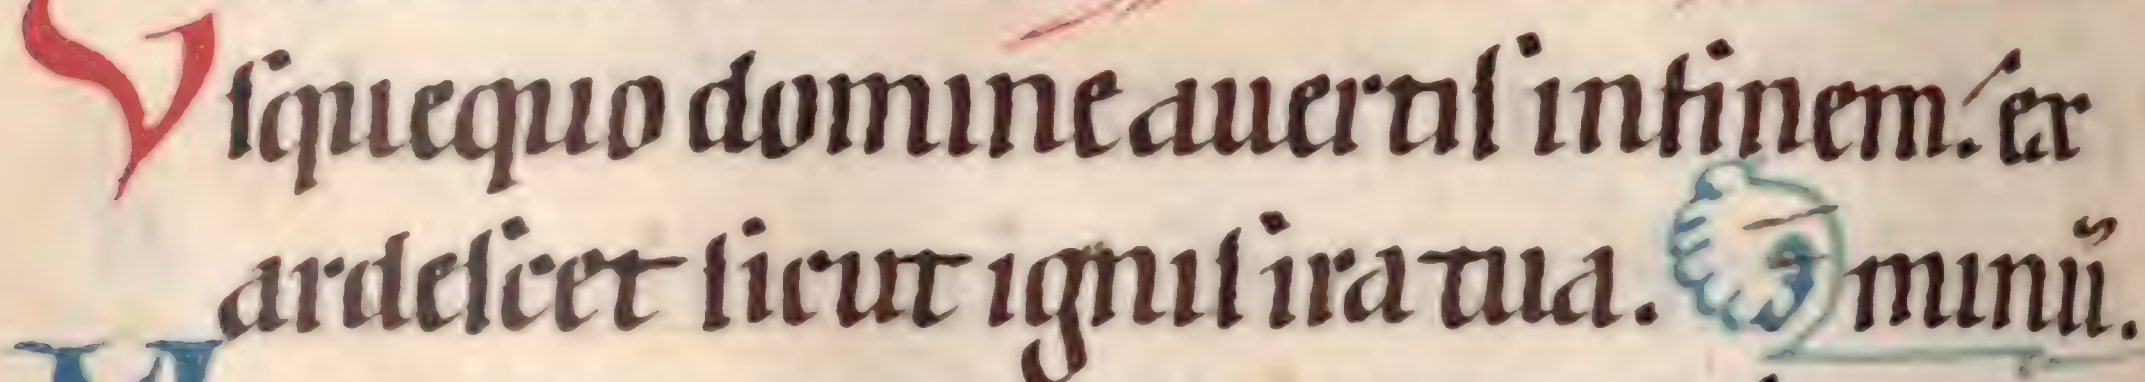 Vſquequo domine auertiſ infinem: ex
ardeſcet ſicut igniſ ira tua. minū.